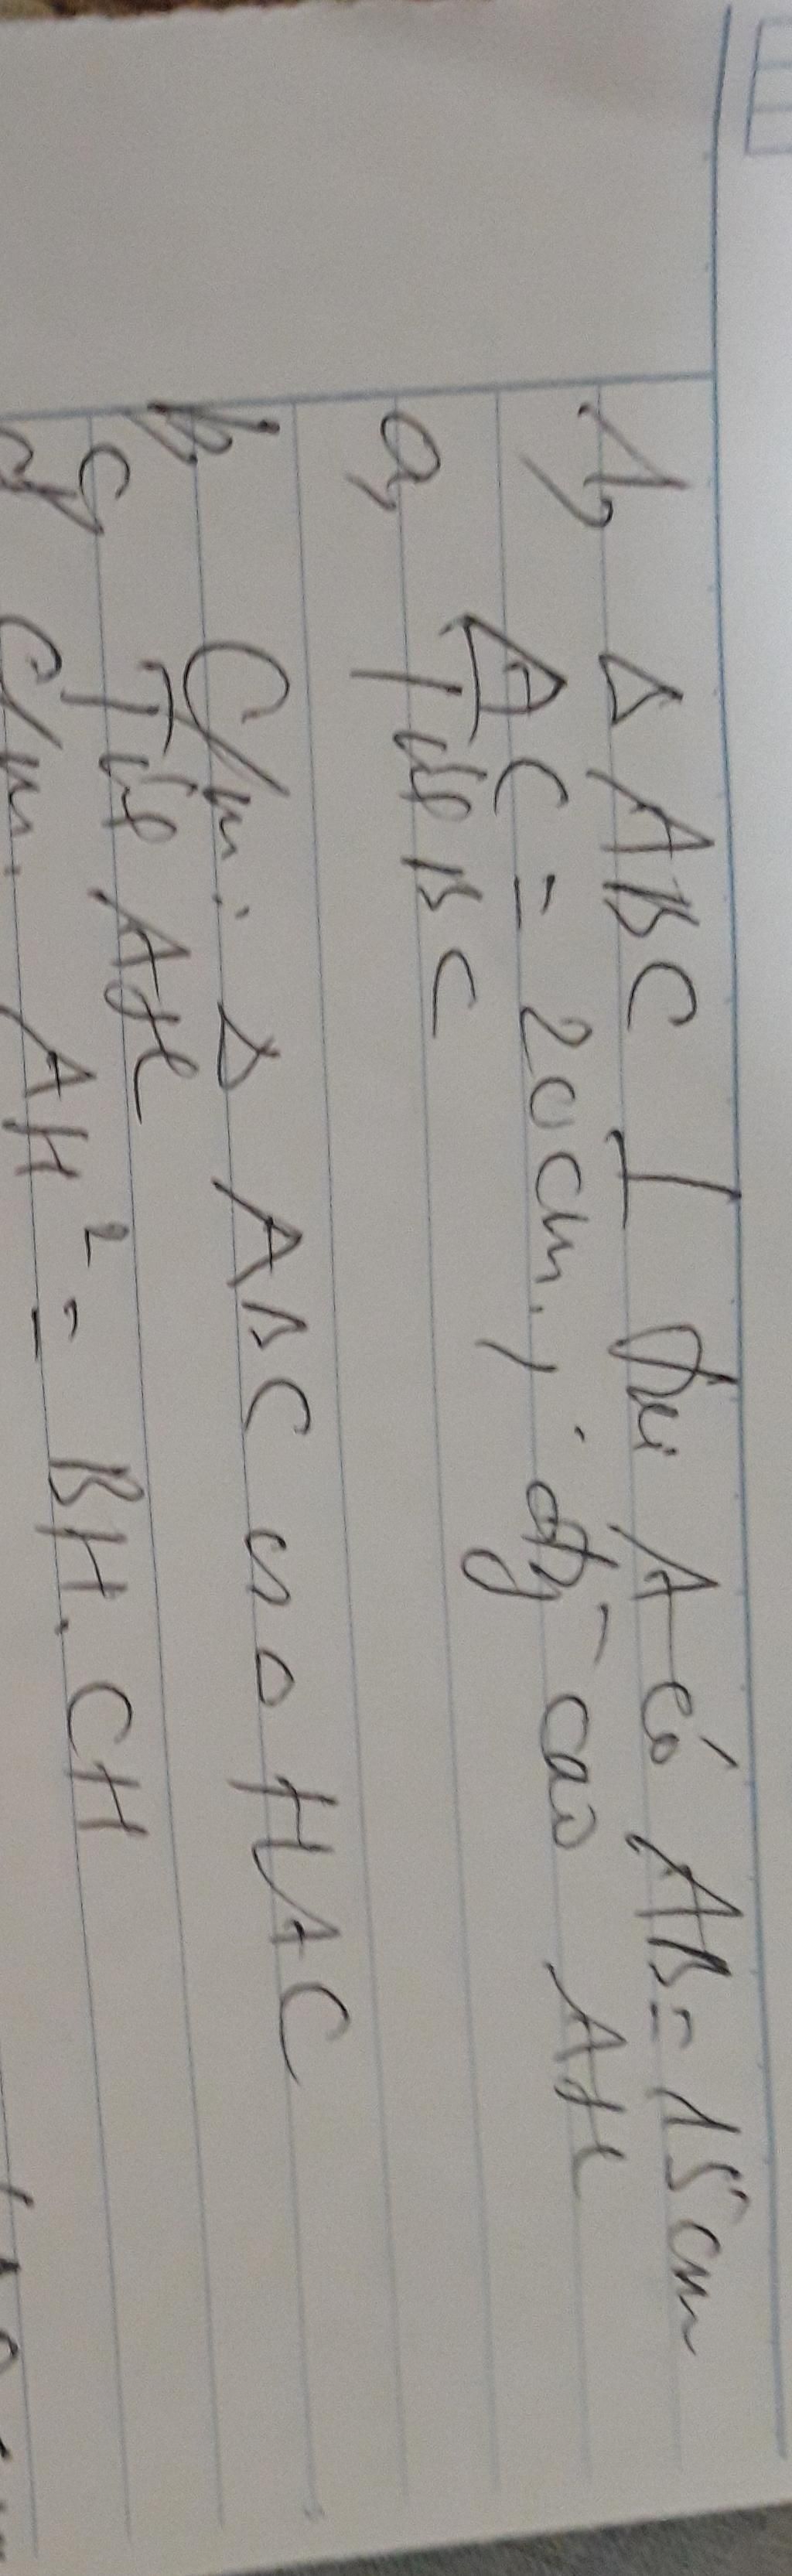 1, Δ ABC ⊥ tại A có AB = 15cm
AC = 20cm, đg cao AH
a, Tính BC
b, C/m: Δ ABC ∽ Δ HAC
c, Tính AH
d, C/m: AH² = BH.CH